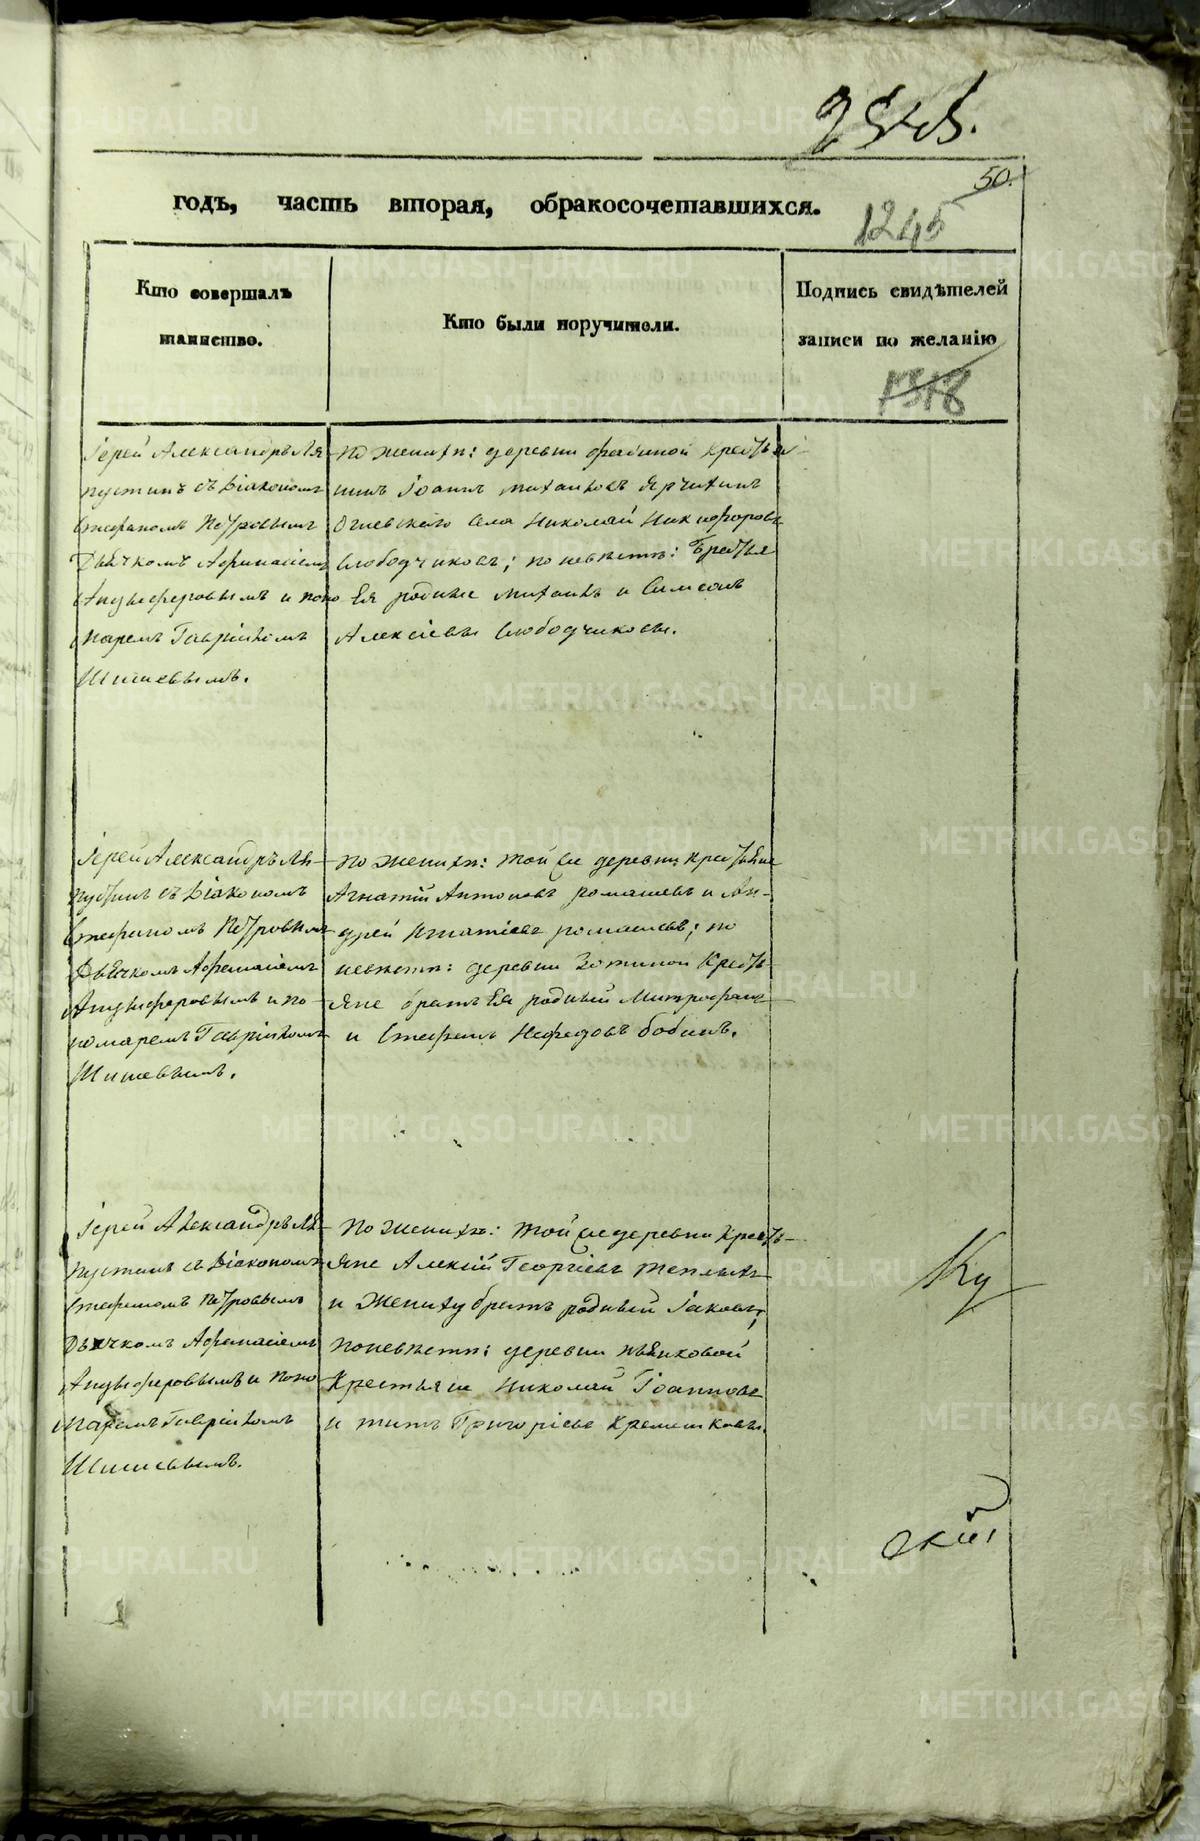 50.
годъ, часть вторая, обракосочетавшихся.
1245
Кто совершалъ
таинство.
Кто были поручители.
Подпись свидѣтелей
записи по желанію
1318
Іерей Александръ Ля-
пустинъ съ Діакономъ
Стефаномъ Петровымъ
Дьячкомъ Афанасіемъ
Анцыферовымъ и поно
маремъ Гавріиломъ
Шишевымъ.
по женихѣ: деревни крестья
нинъ Іоаннъ Михайловъ
Огневскаго села Николай Никифоровъ
Слободчиковъ; по невѣстѣ: Братья
Ея родные Михаилъ и Симеонъ
Алексіевы Слободчиковы.
Іерей Александръ Ля-
пустинъ съ Діакономъ
Стефаномъ Петровымъ
Дьячкомъ Афанасіемъ
Анцыферовымъ и по-
номаремъ Гавріиломъ
Шишевымъ.
по женихѣ: той же деревни крестьяне
Игнатій Антоновъ ромашевъ и Ан-
дрей Игнатіевъ ромашевъ; по
невѣстѣ: деревни Зотиной Кресть-
яне братъ Ея родный Митрофанъ
и Стефанъ Нефедовъ бобинъ.
Іерей Александръ Ля-
пустинъ съ Діакономъ
Стефаномъ Петровымъ
Дьячкомъ Афанасіемъ
Анцыферовымъ и поно
маремъ Гавріиломъ
Шишевымъ.
По женихѣ: той же деревни Кресть-
яне Алексій Георгіевъ
и Жениху братъ родный Іаковъ;
по невѣстѣ: деревни
Крестьяне Николай Іоанновъ
и титъ Григорьевъ
Ку
скій
METRIKI.GASO-URAL.RU